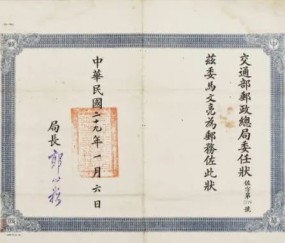 交通部郵政總局委任狀
茲委馬文亮為郵務佐此狀
中華民國二十九年一月六日
局長